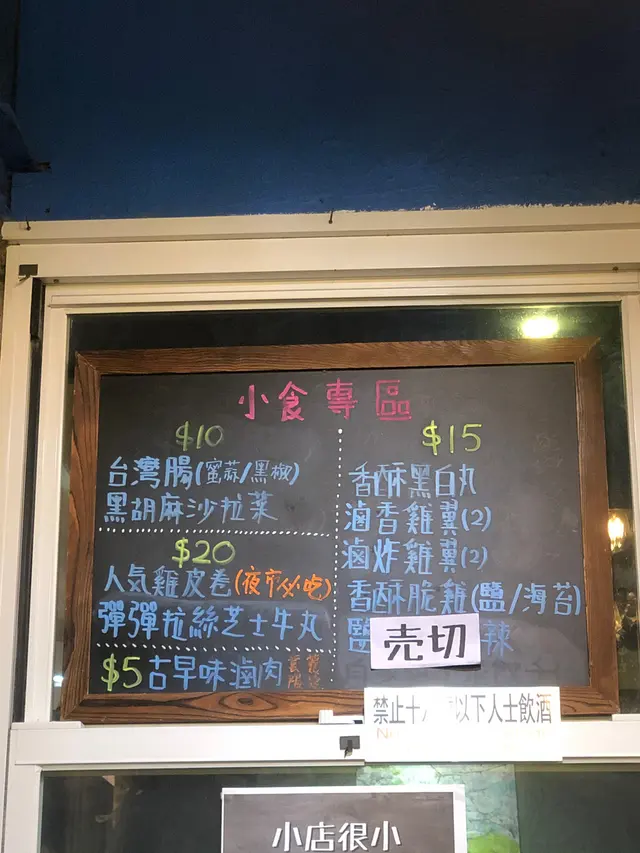 小食專區
$10
台灣腸(蜜蒜/黑椒)
黑胡麻沙拉菜
$20
人気雞皮卷(夜市必吃)
彈彈拉絲芝士牛丸
$5古早味滷肉
$15
香酥黑白丸
滷香雞翼(2)
滷炸雞翼(2)
香酥脆雞(鹽/海苔)
鹽 辣
売切
禁止十 以下人士飲酒
小店很小